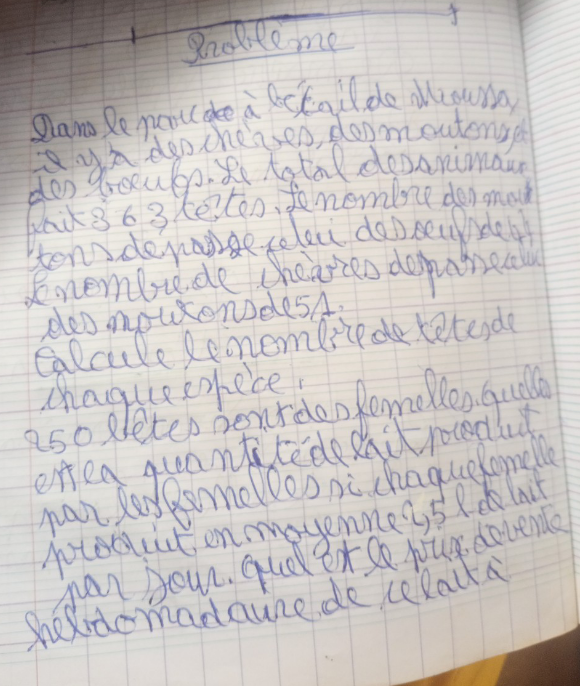 Problème
Dans le parc à bétail de Moussa,
il y a des chèvres, des moutons, et
des boeufs. Le total des animaux
fait 363 têtes. Le nombre des mou
tons dépasse celui des boeufs de
Le nombre de chèvres dépasse celui
des moutons de 51.
Calcule le nombre de têtes de
chaque espèce.
250 bêtes sont des femelles. quelles
est la quantité de lait produit
par les femelles si chaque femelle
produit en moyenne 2,5 l de lait
par jour. quel est le prix de vente
hebdomadaire de ce lait à